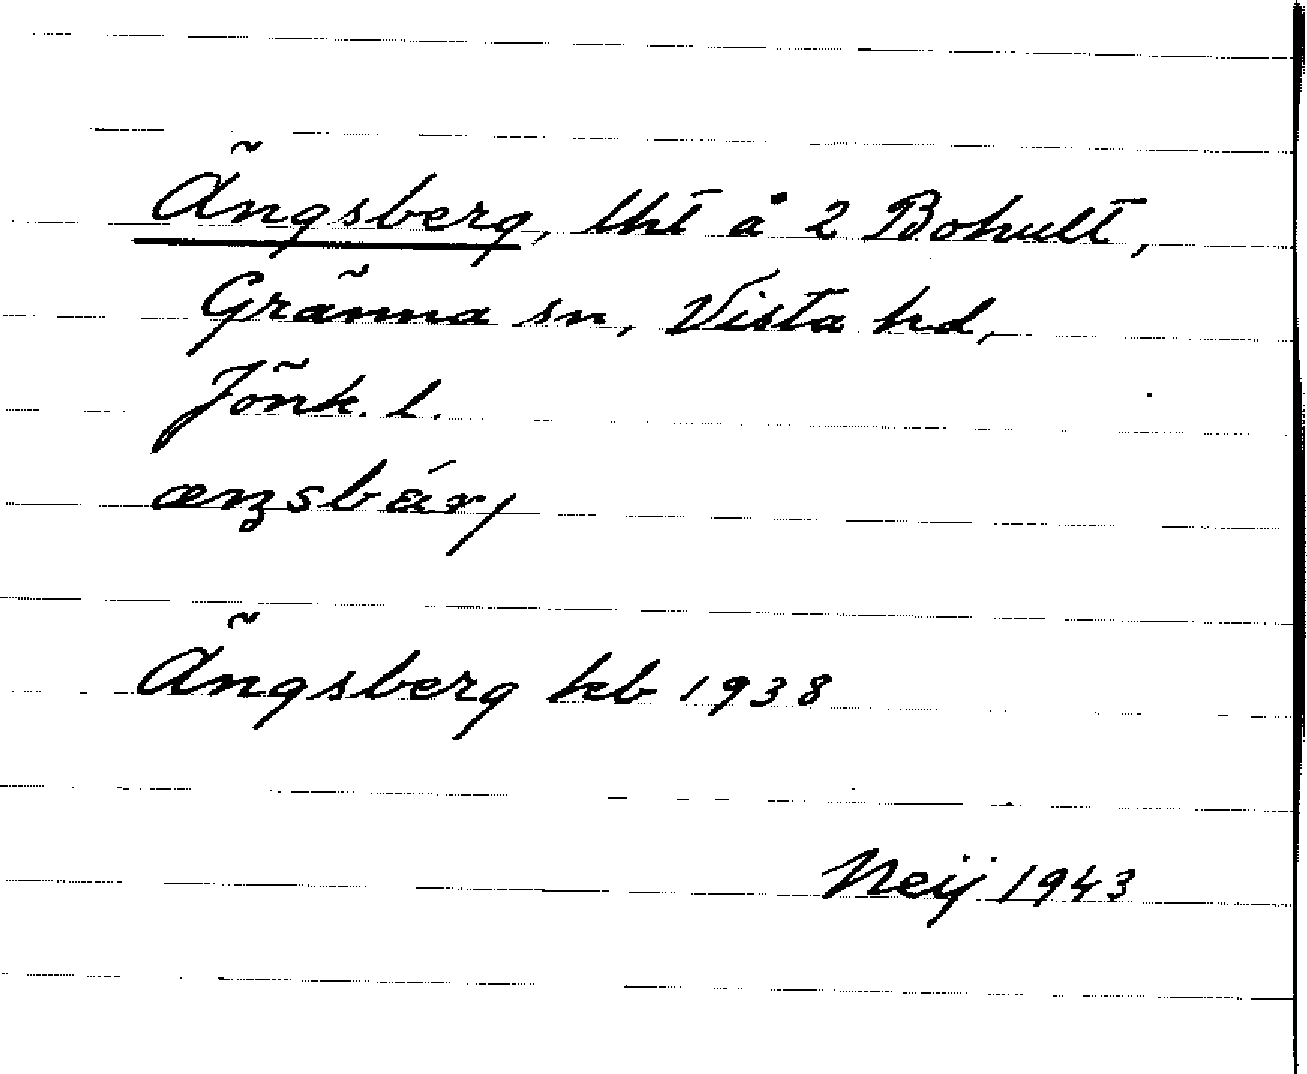 Ängsberg, lht å 2 Bohult,
Gränna sn, Vista hd,
Jönk. l.
Ängsberg kb 1938
Neij 1943